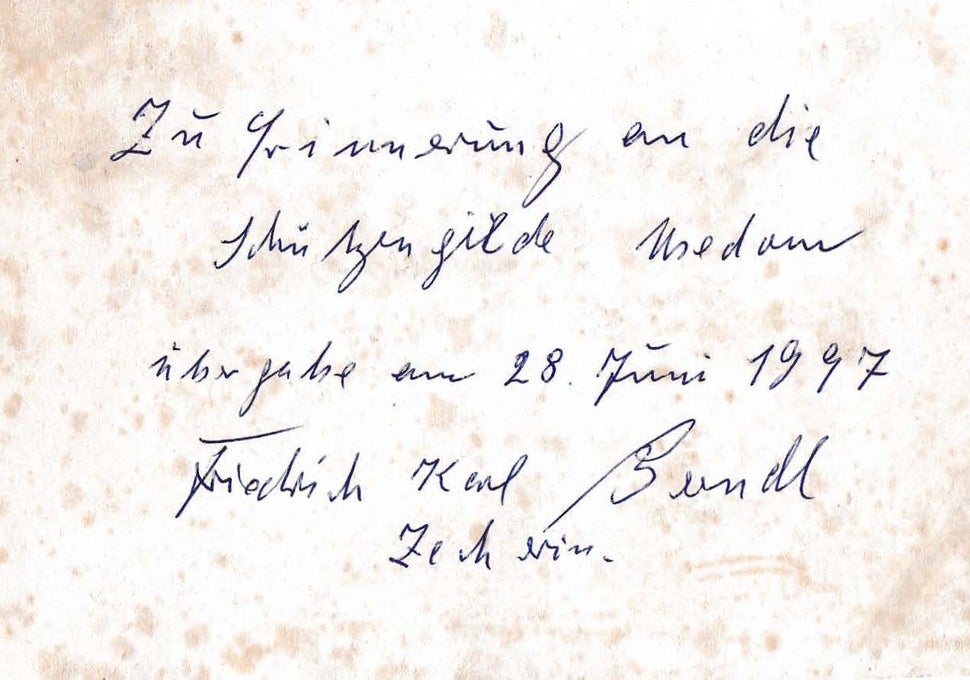 Zu Erinnerung an die
Schützengilde Usedom
übergabe am 28. Juni 1997
Friedrich Karl
Zecherin.